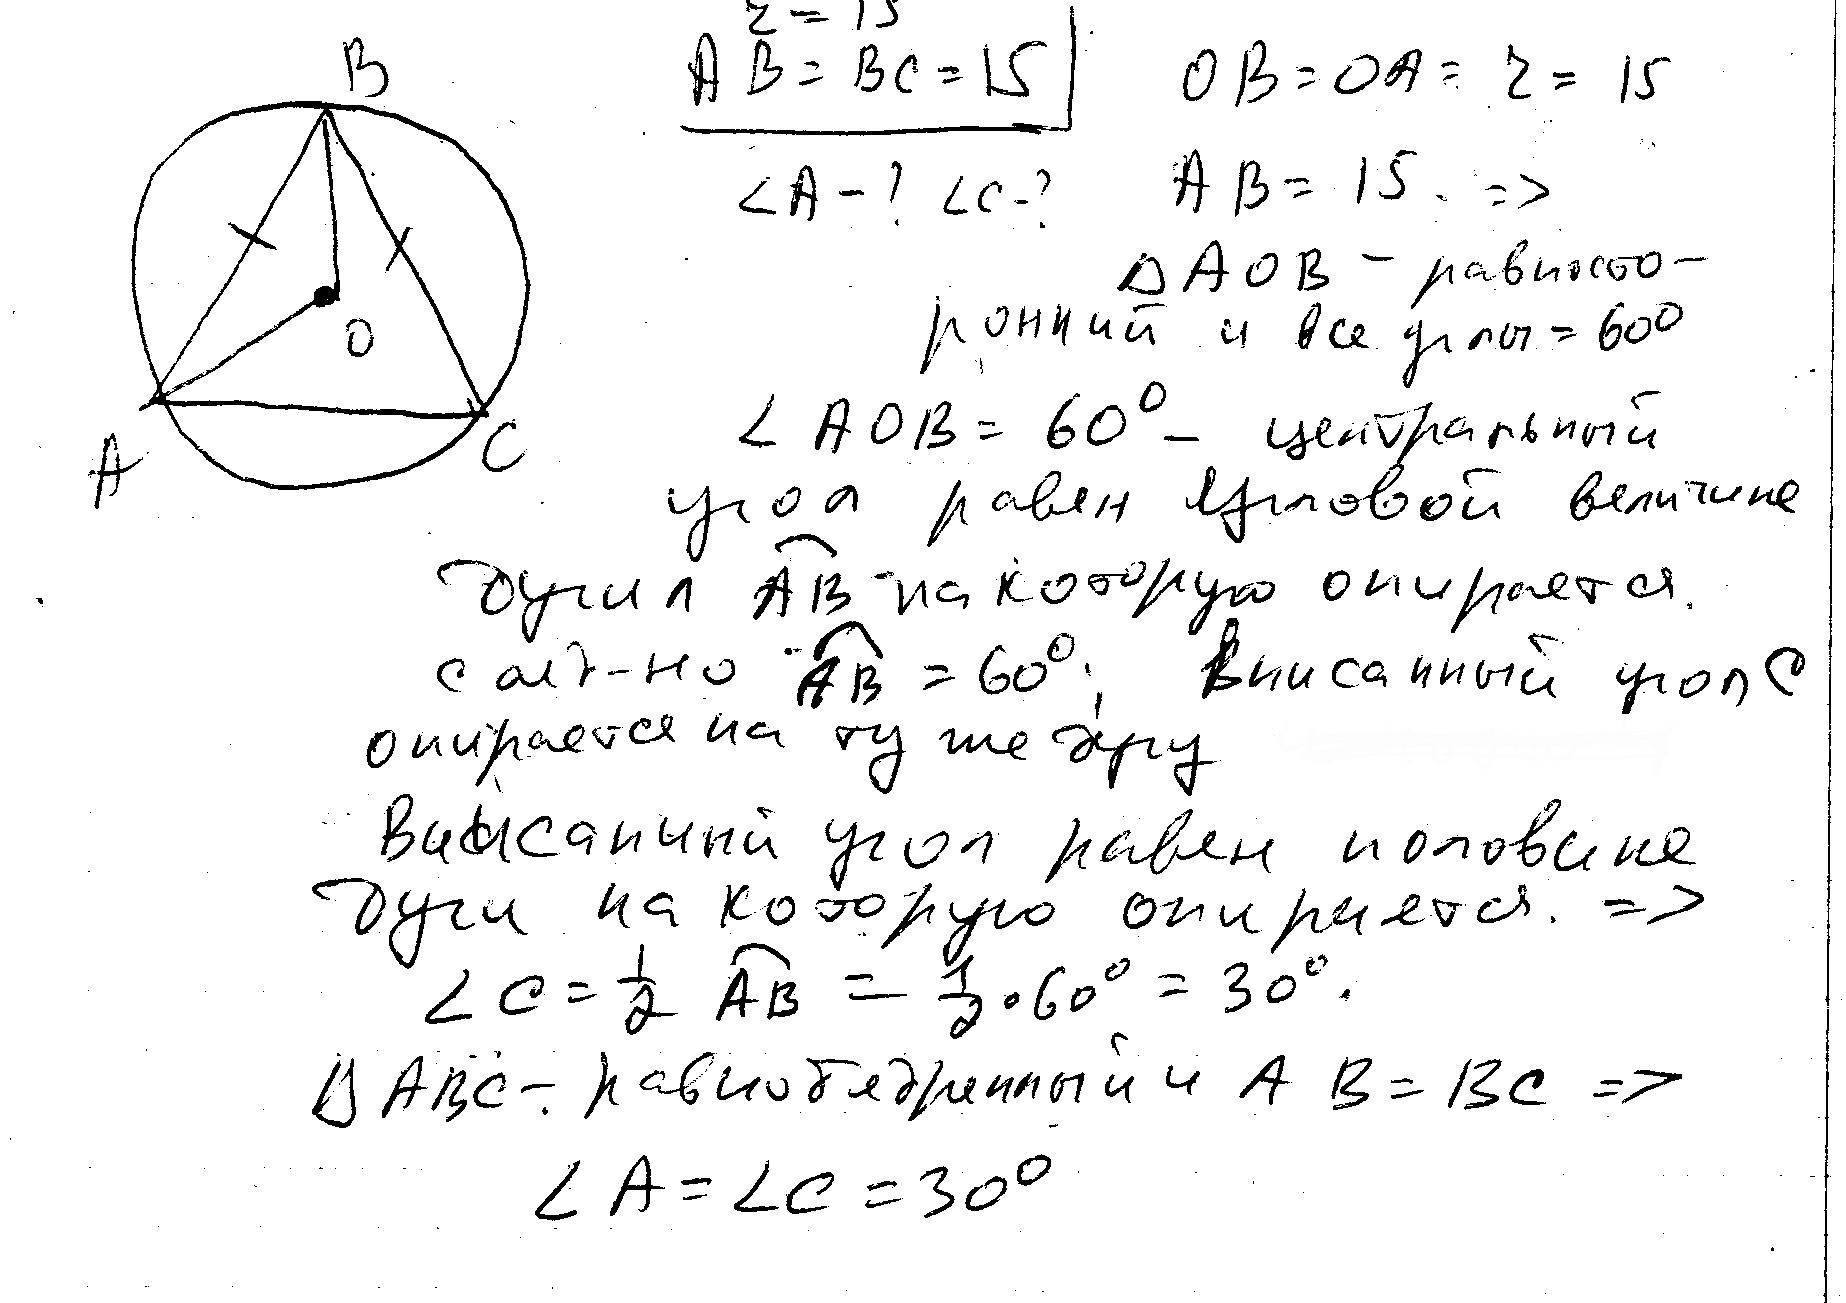 B
A
C
O
r = 15
AB = BC = 15
∠A - ? ∠C - ?
OB = OA = r = 15
AB = 15. =>
△AOB - равносто-
ронний и все углы = 60°
∠AOB = 60° - центральный
угол равен угловой величине
дуги AB на которую опирается.
AB = 60°; Вписанный угол C
опирается на ту же дугу
Вписанный угол равен половине
дуги на которую опирается. =>
∠C = 1/2 AB = 1/2 · 60° = 30°.
△ABC - равнобедренный и AB = BC =>
∠A = ∠C = 30°